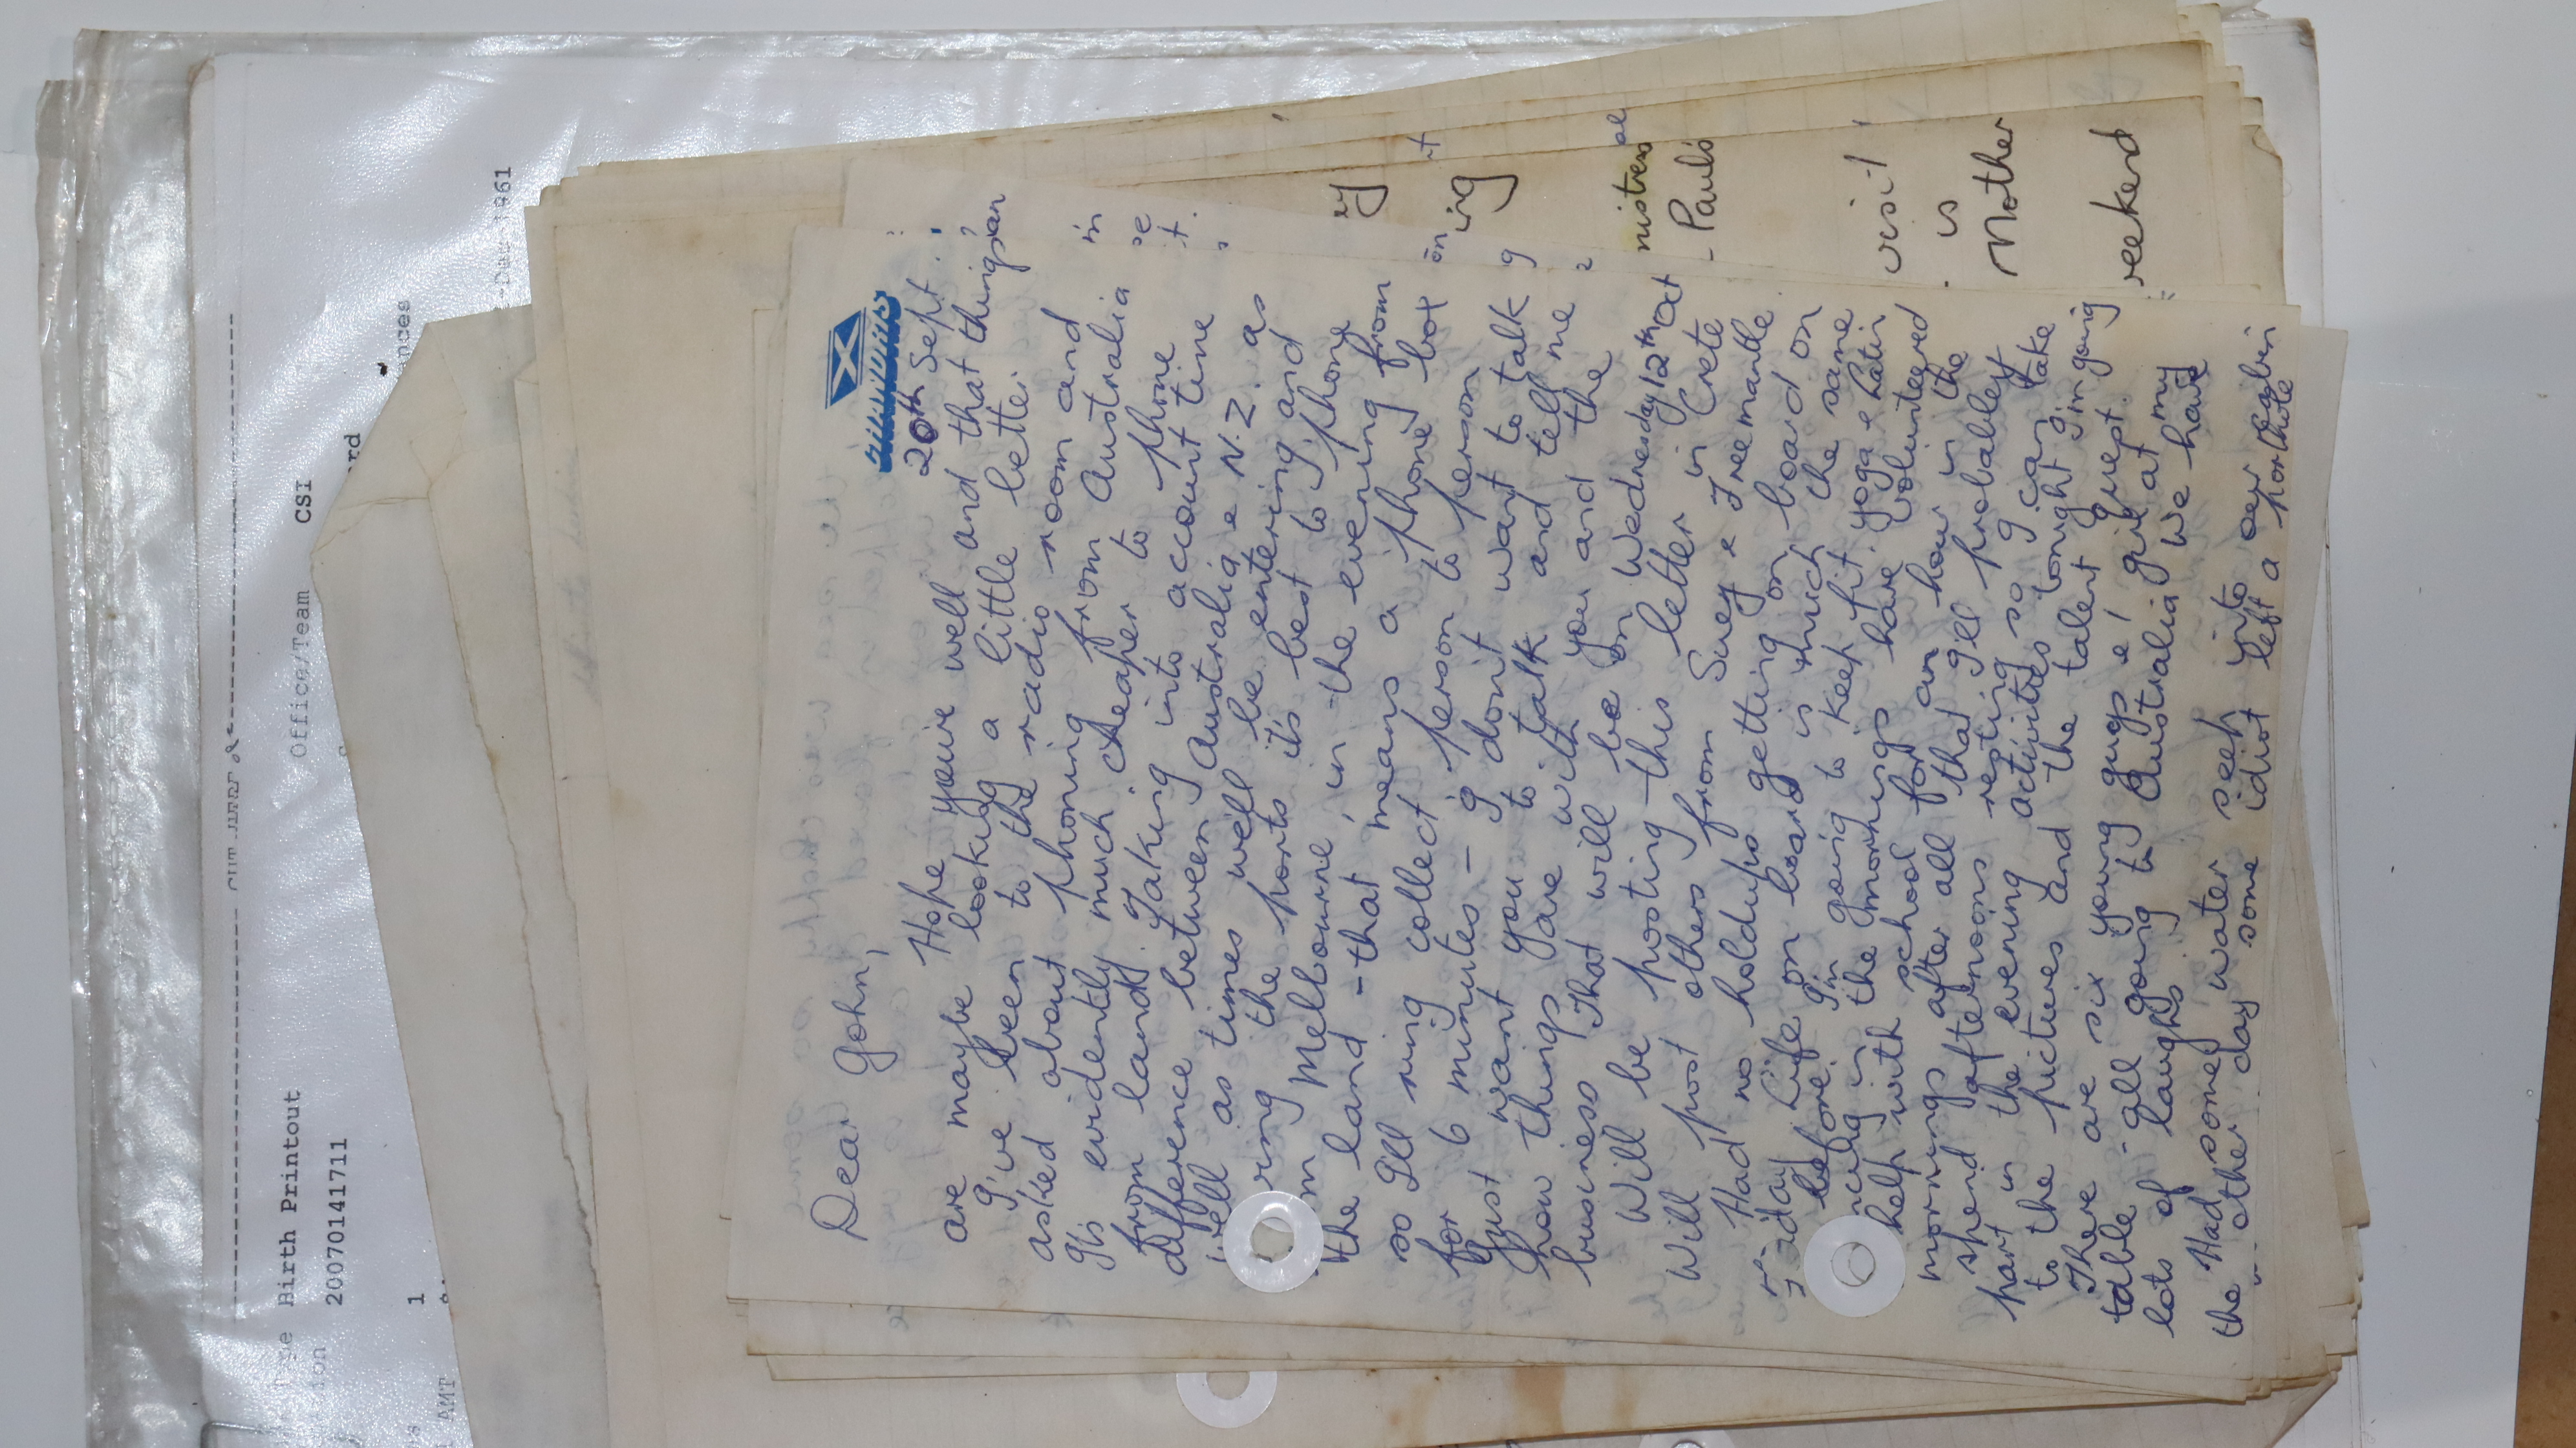 Birth Printout
Office/Team CSI
20070141711
1
AMT
1961
20th Sept.
Dear John,
Hope you're well and that things
are maybe looking a little better
I've been to the radio room and
asked about phoning from Australia
It's evidently much cheaper to phone
from land. Taking into account time
difference between Australia & N.Z. as
well as times we'll be entering and
the ports it's best to phone
Melbourne, in the evening from
the land - that means a phone box
so I'll ring collect person to person
for 6 minutes - I don't want to talk
Just want you to talk and tell me
how things are with you and the
business That will be on Wednesday 12th Oct
Will be posting this letter in Crete
Will post others from Suez & Freemantle
Had no holdups getting on board on
Life on board is much the same
before. I'm going to keep fit, yoga & Latin
in the mornings have volunteered
help with school for an hour in the
mornings after all that I'll probabley
spend afternoons resting so I can take
part in the evening activities tonight I'm going
to the pictures and the talent quest.
There are six young guys & 1 girl at my
table - all going to Australia we have
lots of laughs.
Had some water seep into our cabin
the other day some idiot left a porthole
mistress
- Paul's
visit
is
Mother